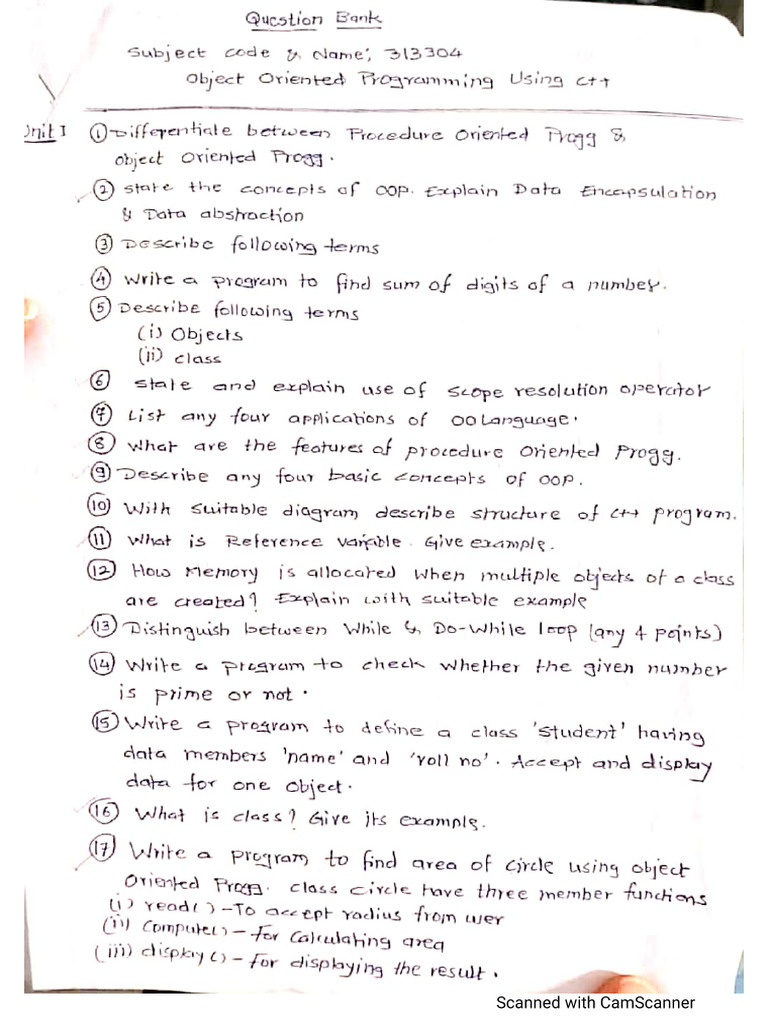 Question Bank
Subject code & Name:, 313304
Object Oriented Programming Using C++
Unit I ① Differentiate between Procedure Oriented Progg &
Object Oriented Progg.
② State the concepts of OOP. Explain Data Encapsulation
& Data abstraction
③ Describe following terms
④ Write a program to find sum of digits of a number.
⑤ Describe following terms
(i) Objects
(ii) class
⑥ State and explain use of scope resolution operator
⑦ List any four applications of OO Language.
⑧ What are the features of procedure Oriented Progg.
⑨ Describe any four basic concepts of OOP.
⑩ With suitable diagram describe structure of C++ program.
⑪ What is Reference variable. Give example.
⑫ How Memory is allocated when multiple objects of a class
are created? Explain with suitable example
⑬ Distinguish between While & Do-While loop (any 4 points)
⑭ Write a program to check whether the given number
is prime or not.
⑮ Write a program to define a class 'student' having
data members 'name' and 'roll no'. Accept and display
data for one object.
⑯ What is class? Give its example.
⑰ Write a program to find area of circle using object
Oriented Progg. class circle have three member functions
(i) read() - To accept radius from user
(ii) compute() - For calculating area
(iii) display() - For displaying the result.
Scanned with CamScanner